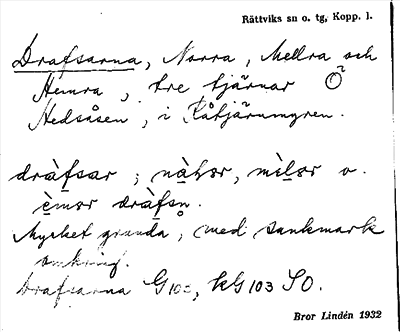 Rättviks sn o. tg, Kopp. l.
Drafsarna, Norra, Mellra och
Hemra, tre tjärnar Ö
Hedsåsen, i Råtjärnmyren.
dràfsar ; nàhər, mèləر o.
èmər dràfsn.
Mycket grunda, med sankmark
omkring.
Drafsarna G103, kG103 SO.
Bror Lindén 1932